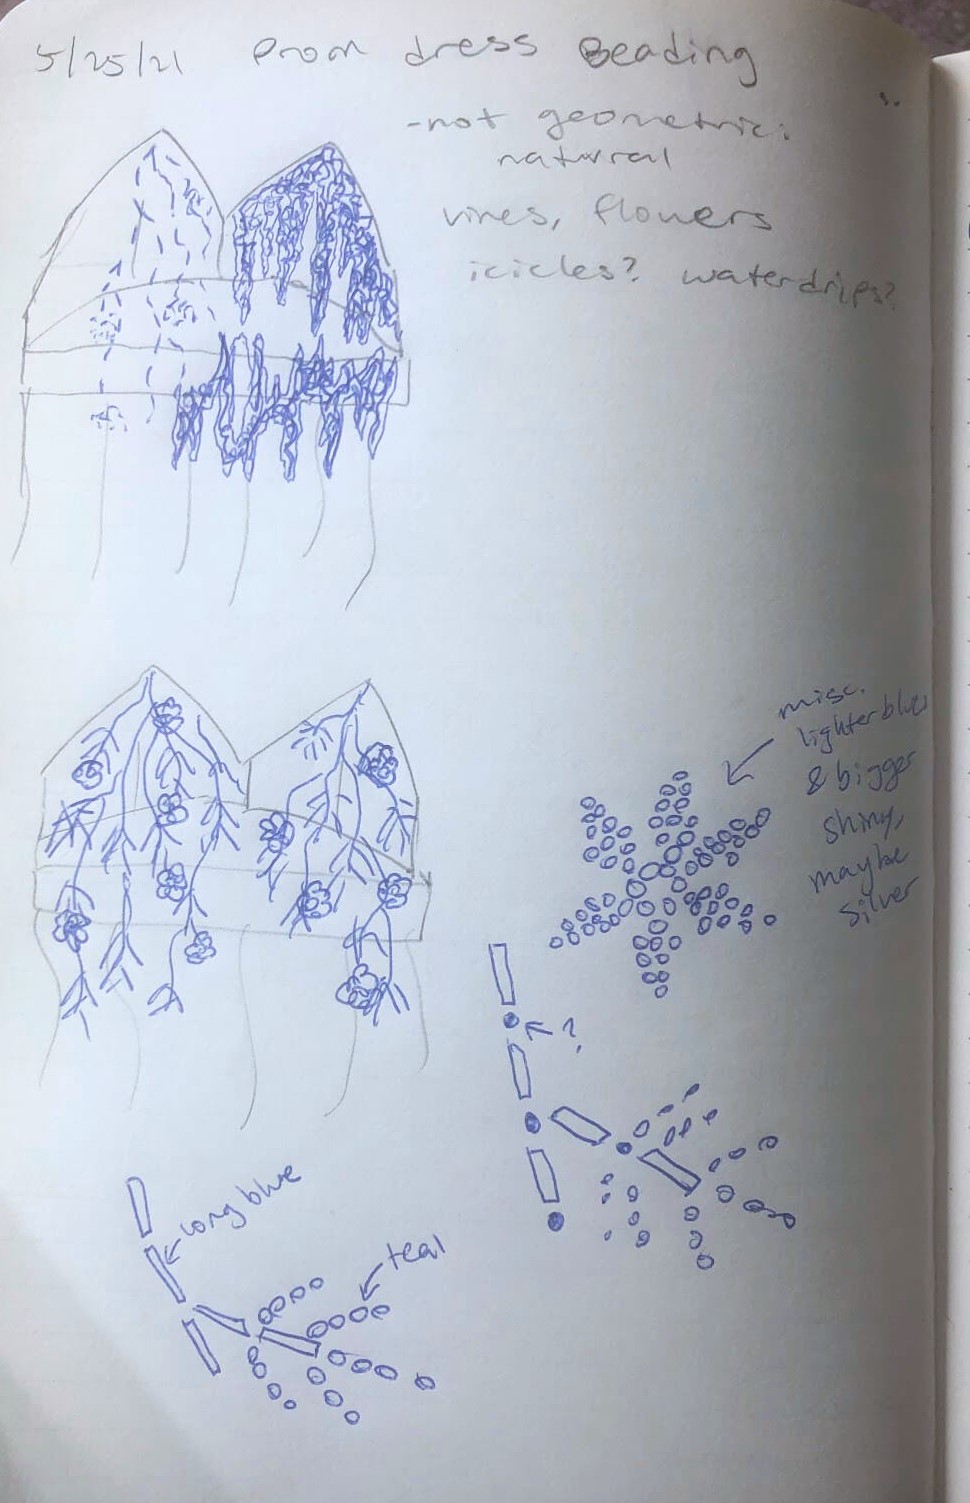 5/25/21 Prom dress Beading
-not geometric:
natural
vines, flowers
icicles? waterdrips?
misc.
lighter blues
& bigger
shiny,
maybe
silver
?
long blue
teal